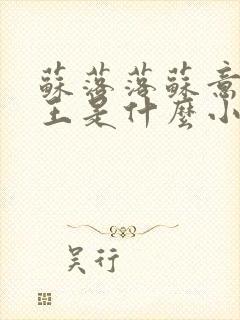 蘇落落蘇意
王是什麼小
吴行